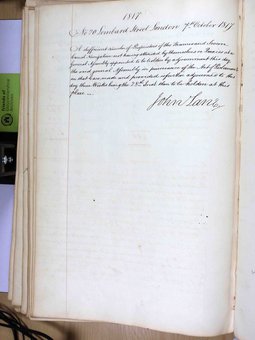 1817
No 70 Lombard Street London 7th October 1817
A sufficient number of Proprietors of the Thames and Severn
Canal Navigation not having attended by themselves or Proxies at a
General Assembly appointed to be holden by adjournment this day
the said general Assembly in pursuance of the Act of Parliament
in that case made and provided is further adjourned to this
day three Weeks being the 28th Inst then to be holden at this
place
John Lane
friends of